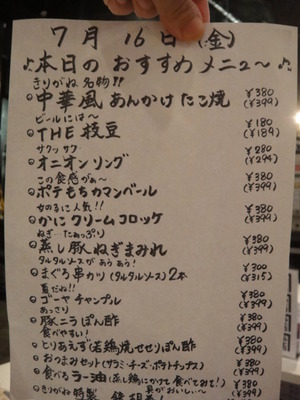 7月16日(金)
♪本日のおすすめメニュー〜♪
きりがね名物!!
◎中華風あんかけたこ焼 ¥380 (¥399)
ビールには〜
◎THE枝豆 ¥180 (¥189)
サクッサク
◎オニオンリング ¥280 (¥294)
この食感がぁ〜
◎ポテもちカマンベール ¥380 (¥399)
かにクリームコロッケ ¥380 (¥399)
ねぎたぁっぷり
◎蒸し豚ねぎまみれ ¥380 (¥399)
タルタルソースがあうあう!
◎まぐろ串カツ(タルタルソース)2本 ¥300 (¥315)
夏だね!!
◎ゴーヤチャンプル ¥380 (¥399)
あっさり
◎豚ニラぽん酢 ¥380 (¥399)
食べやすい!
◎とりあえず若鶏焼せせりぽん酢 ¥380 (¥399)
◎おつまみセット(サラミ・チーズ・ポテトチップス) ¥380 (¥399)
◎食べるラー油(蒸し鶏にかけて食べてみて!) ¥380 (¥399)
きりがね特製 具がおいしい〜